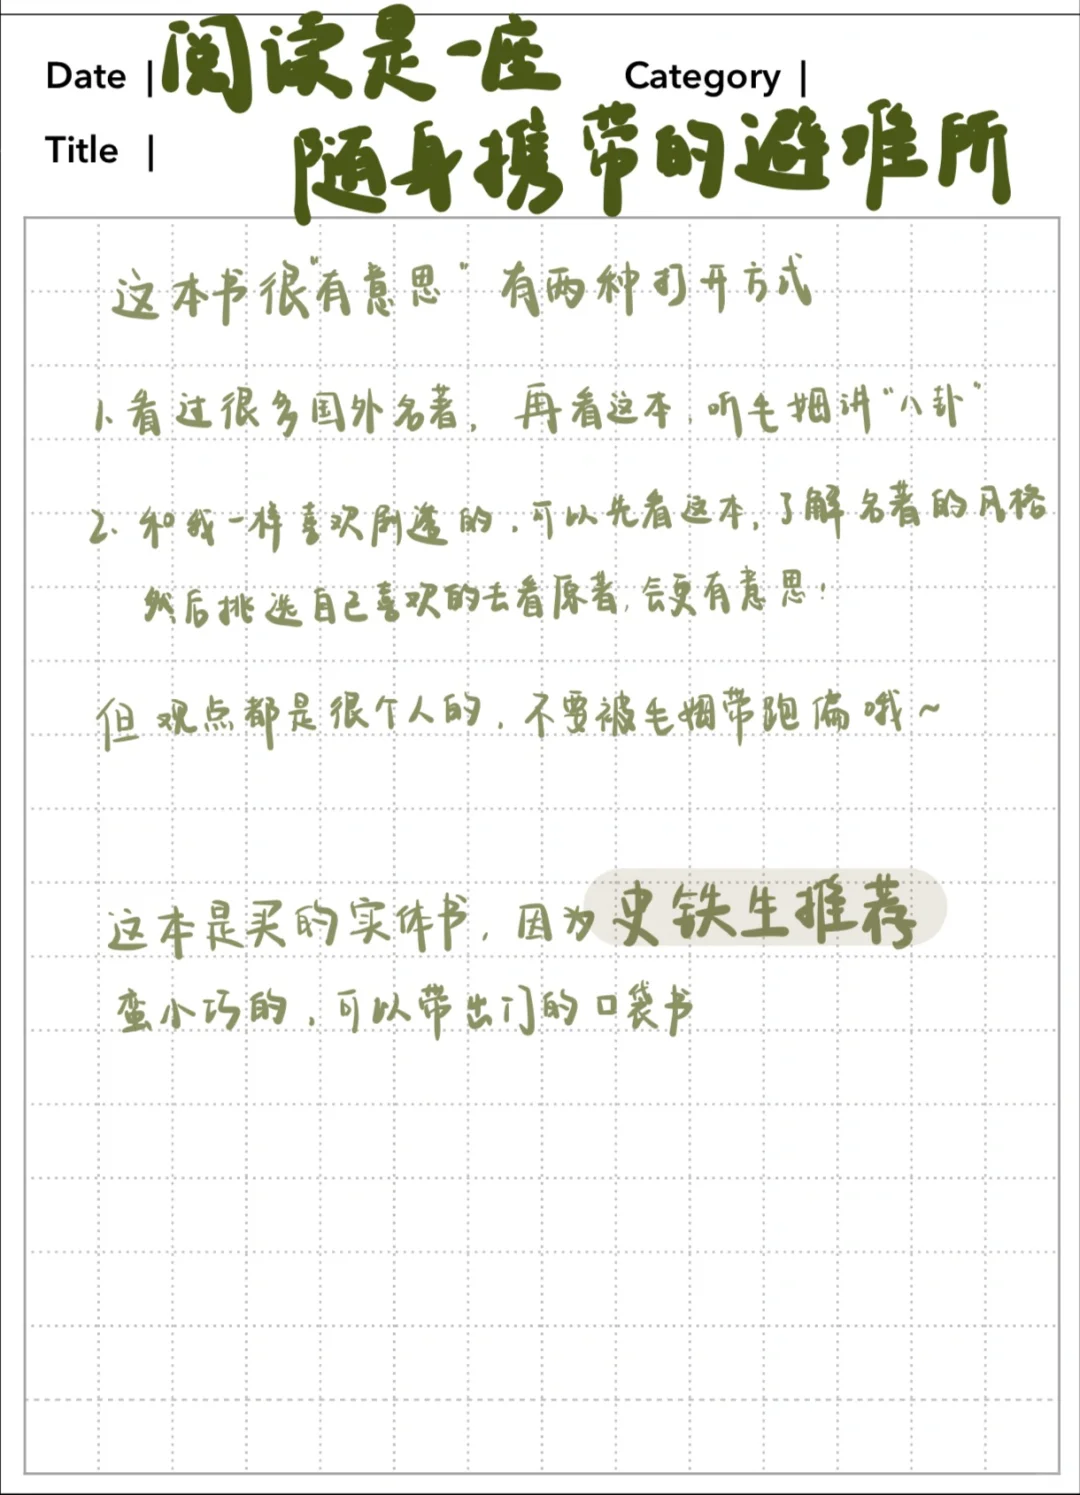 Date | 阅读是一座 Category |
Title | 随身携带的避难所
这本书很"有意思" 有两种打开方式
1. 看过很多国外名著, 再看这本, 听毛姆讲"八卦"
2. 和我一样喜欢剧透的, 可以先看这本, 了解名著的风格
然后挑选自己喜欢的去看原著, 会更有意思!
但观点都是很个人的, 不要被毛姆带跑偏哦~
这本是买的实体书, 因为史铁生推荐
蛮小巧的, 可以带出门的口袋书